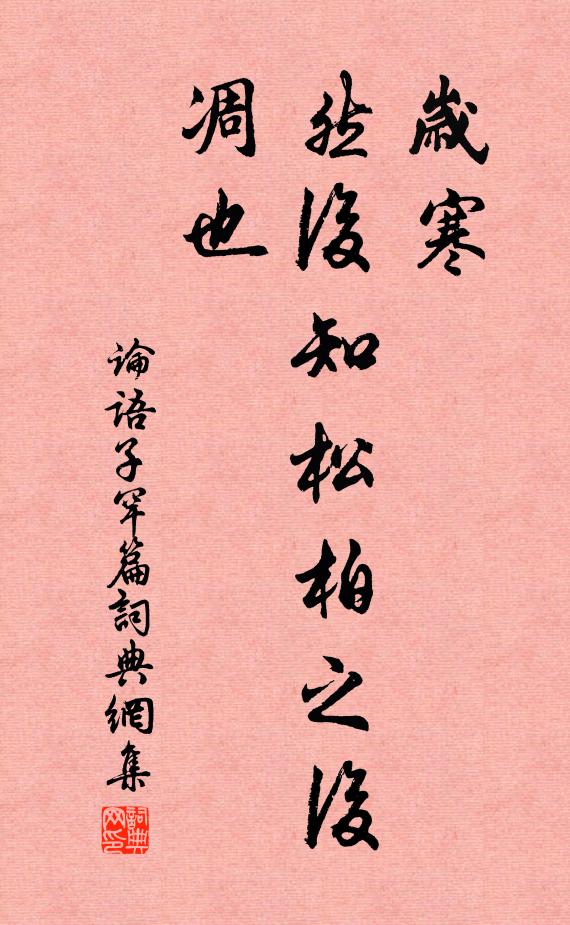 歲寒
然後知松柏之後
凋也
論語子罕篇詞典網集
詞典网印